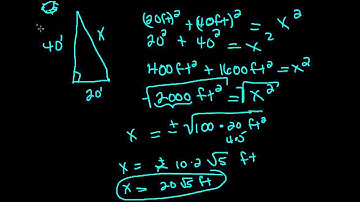 40'
x
20'
(20ft)² + (40ft)² = x²
20² + 40² = x²
400ft² + 1600ft² = x²
√2000 ft² = √x²
x = ±√100·20 ft²
4·5
x = ± 10·2 √5 ft
x = 20 √5 ft